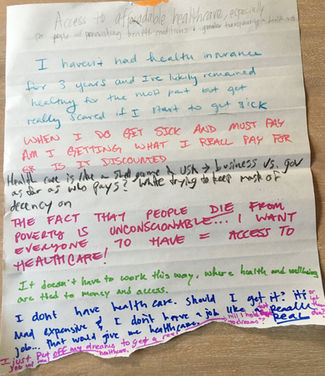 Access to affordable healthcare, especially
for people w/ preexisting health conditions & greater transparency
I haven't had health insurance
for 3 years and I've likely remained
healthy for the most part but get
really scared if I start to get sick
WHEN I DO GET SICK AND MUST PAY
AM I GETTING WHAT I REALL PAY FOR
OR IS IT DISCOUNTED
Health care is like a shell game in USA → business vs. gov
as far as who pays? while trying to keep mask of
decency on
THE FACT THAT PEOPLE DIE FROM
POVERTY IS UNCONSCIONABLE... I WANT
EVERYONE TO HAVE = ACCESS TO
HEALTHCARE!
It doesn't have to work this way, where health and wellbeing
are tied to money and access.
I don't have health care. Should I get it? It's
mad expensive & I don't have a job like a really REAL
job... that would give me healthcare.
I just put off my dreams to get a real
healthcare.